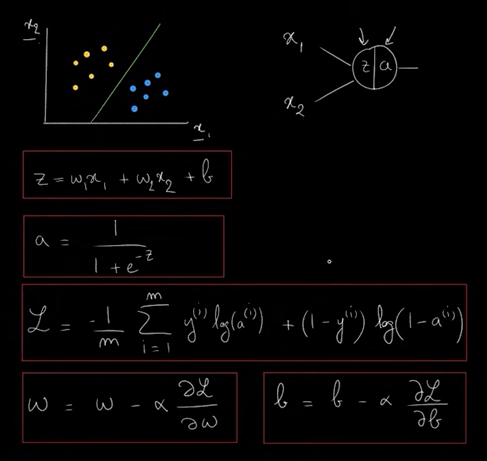 x₂
x₁
x₁
x₂
z a
z = w₁x₁ + w₂x₂ + b
a = 1 / (1 + e^{-z})
ℒ = -1/m ∑_{i=1}^{m} y^{(i)} log(a^{(i)}) + (1 - y^{(i)}) log(1 - a^{(i)})
w = w - α ∂ℒ/∂w
b = b - α ∂ℒ/∂b